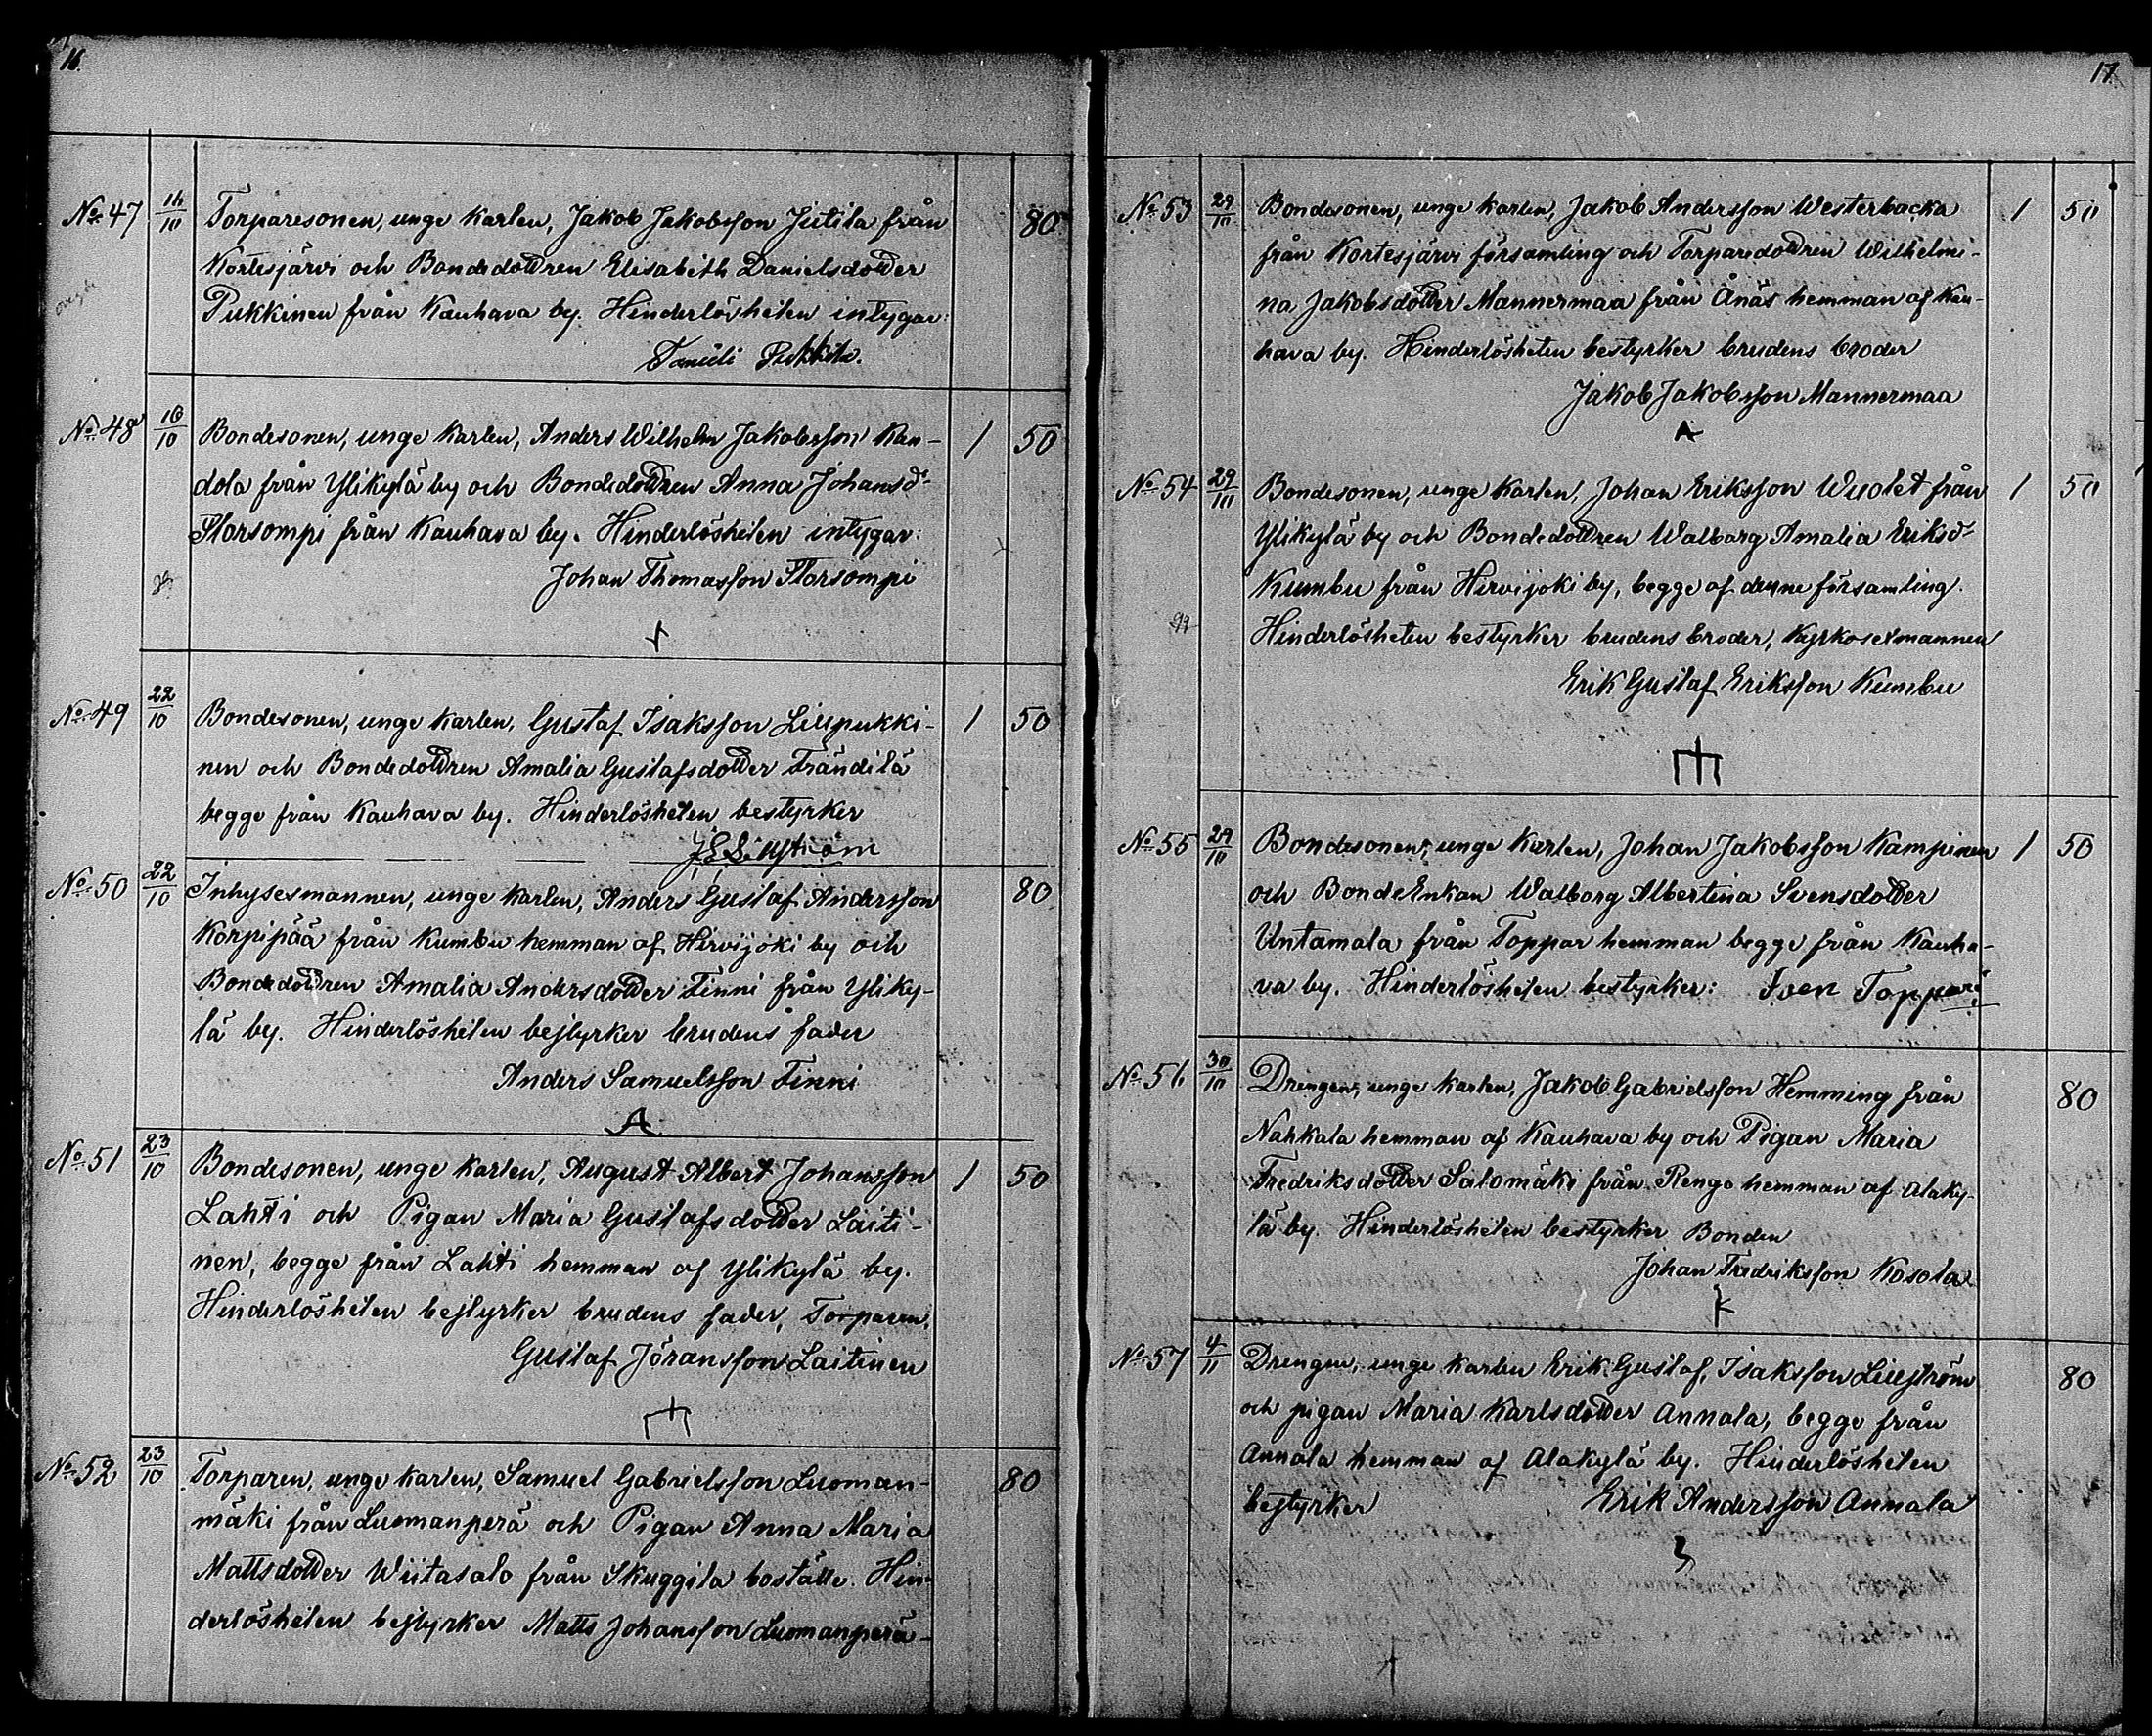 16.
No 47 16/10 Torparesonen, unge karlen, Jakob Jakobsson Jutila från 80
Kortesjärvi och Bondedottren Elisabeth Danielsdotter
Pukkinen från Kauhava by. Hinderlösheten intygar:
No 48 16/10 Bondesonen, unge karlen, Anders Wilhelm Jakobsson Kan- 1 50
dola från Ylikylä by och Bondedottren Anna Johansdr
Storsompi från Kauhava by. Hinderlösheten intygar:
Johan Thomasson Storsompi
No 49 22/10 Bondesonen, unge karlen, Gustaf Isaksson Liupukki- 1 50
nen och Bondedottren Amalia Gustafsdotter Frändilä
begge från Kauhava by. Hinderlösheten bestyrker
No 50 22/10 Inhysesmannen, unge karlen, Anders Gustaf Andersson 80
Korpipää från Kumbu hemman af Hirvijoki by och
Bondedottren Amalia Andersdotter Finni från Yliky-
lä by. Hinderlösheten bestyrker brudens fader
Anders Samuelsson Finni
A
No 51 23/10 Bondesonen, unge karlen, August Albert Johansson 1 50
Lahti och Pigan Maria Gustafsdotter Laiti-
nen, begge från Lahti hemman af Ylikylä by.
Hinderlösheten bestyrker brudens fader, Torparen,
Gustaf Jöransson Laitinen
No 52 23/10 Torparen, unge karlen, Samuel Gabrielsson Luoman- 80
mäki från Luomanperä och Pigan Anna Maria
Mattsdotter Wiitasalo från Skuggila boställe. Hin-
derlösheten bestyrker Matts Johansson Luomanperä-
17.
No 53 29/10 Bondesonen, unge karlen, Jakob Andersson Westerbacka 1 50
från Kortesjärvi församling och Torparedottren Wilhelmi-
na Jakobsdotter Mannermaa från Ånäs hemman af Kau-
hava by. Hinderlösheten bestyrker brudens broder
Jakob Jakobsson Mannermaa
A
No 54 29/10 Bondesonen, unge karlen, Johan Eriksson Wuolet från 1 50
Ylikylä by och Bondedottren Walborg Amalia Eriksdr
Kumbu från Hirvijoki by, begge af denne församling.
Hinderlösheten bestyrker brudens broder, Kyrkosexmannen
Erik Gustaf Eriksson Kumbu
No 55 29/10 Bondesonen, unge karlen, Johan Jakobsson Kampinen 1 50
och BondeEnkan Walborg Albertina Svensdotter
Untamala från Toppar hemman begge från Kauha-
va by. Hinderlösheten bestyrker: Sven Toppari
No 56 30/10 Drengen, unge karlen, Jakob Gabrielsson Hemming från 80
Nahkala hemman af Kauhava by och Pigan Maria
Fredriksdotter Salomäki från Rengo hemman af Alaky-
lä by. Hinderlösheten bestyrker Bonden
Johan Fredriksson Kosola
No 57 4/11 Drengen, unge karlen Erik Gustaf Isaksson Liugström 80
och pigan Maria Karlsdotter Annala, begge från
Annala hemman af Alakylä by. Hinderlösheten
bestyrker Erik Andersson Annala